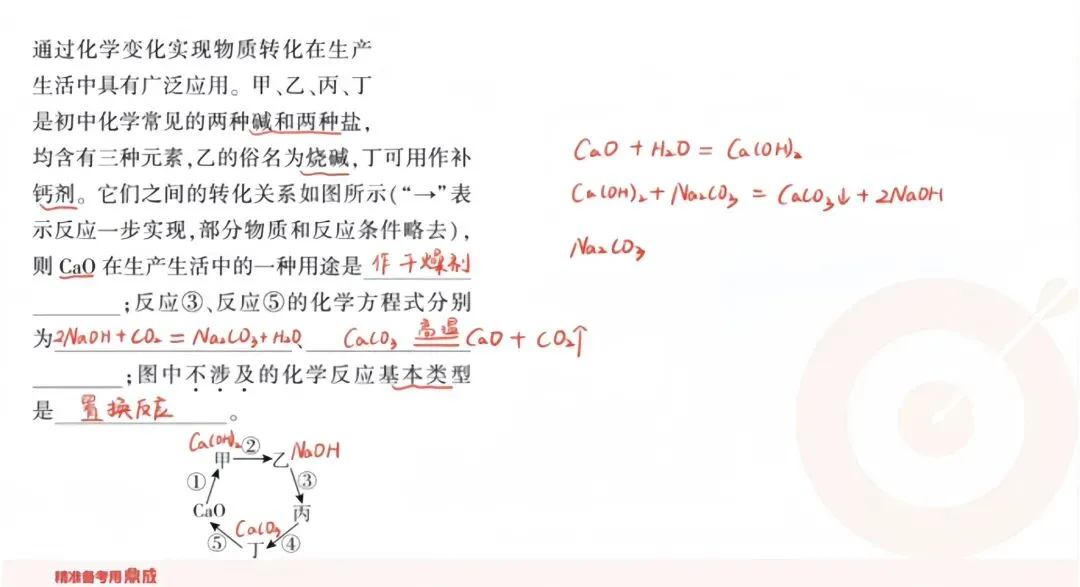 通过化学变化实现物质转化在生产
生活中具有广泛应用。甲、乙、丙、丁
是初中化学常见的两种碱和两种盐,
均含有三种元素,乙的俗名为烧碱,丁可用作补
钙剂。它们之间的转化关系如图所示(“→”表
示反应一步实现,部分物质和反应条件略去),
则 CaO 在生产生活中的一种用途是 作干燥剂
;反应③、反应⑤的化学方程式分别
为 2NaOH + CO₂ = Na₂CO₃ + H₂O、 CaCO₃ 高温 CaO + CO₂↑
;图中不涉及的化学反应基本类型
是 置换反应 。
CaO + H₂O = Ca(OH)₂
Ca(OH)₂ + Na₂CO₃ = CaCO₃↓ + 2NaOH
Na₂CO₃
Ca(OH)₂ ② NaOH
甲 乙
① ③
CaO 丙
CaCO₃
⑤ 丁 ④
精准备考用鼎成